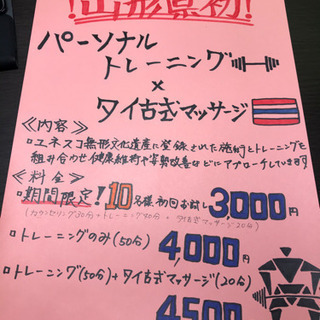 !山形県初!
パーソナル
トレーニング
×
タイ古式マッサージ
≪内容≫
○ユネスコ無形文化遺産に登録された施術とトレーニングを
組み合わせ健康維持や姿勢改善などにアプローチしています
≪料金≫
○期間限定!10名様初回お試し3,000円
(カウンセリング30分+トレーニング40分+タイ古式マッサージ20分)
○トレーニングのみ(50分) 4,000円
○トレーニング(50分)+タイ古式マッサージ(20分)
4500